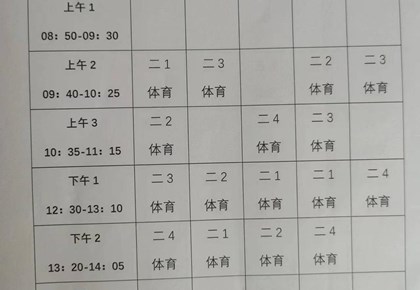 上午1
08：50-09：30
上午2 二1 二3 二2 二3
09：40-10：25 体育 体育 体育 体育
上午3 二2 二4 二3
10：35-11：15 体育 体育 体育
下午1 二3 二2 二1 二1 二4
12：30-13：10 体育 体育 体育 体育 体育
下午2 二4 二1 二2 二4
13：20-14：05 体育 体育 体育 体育